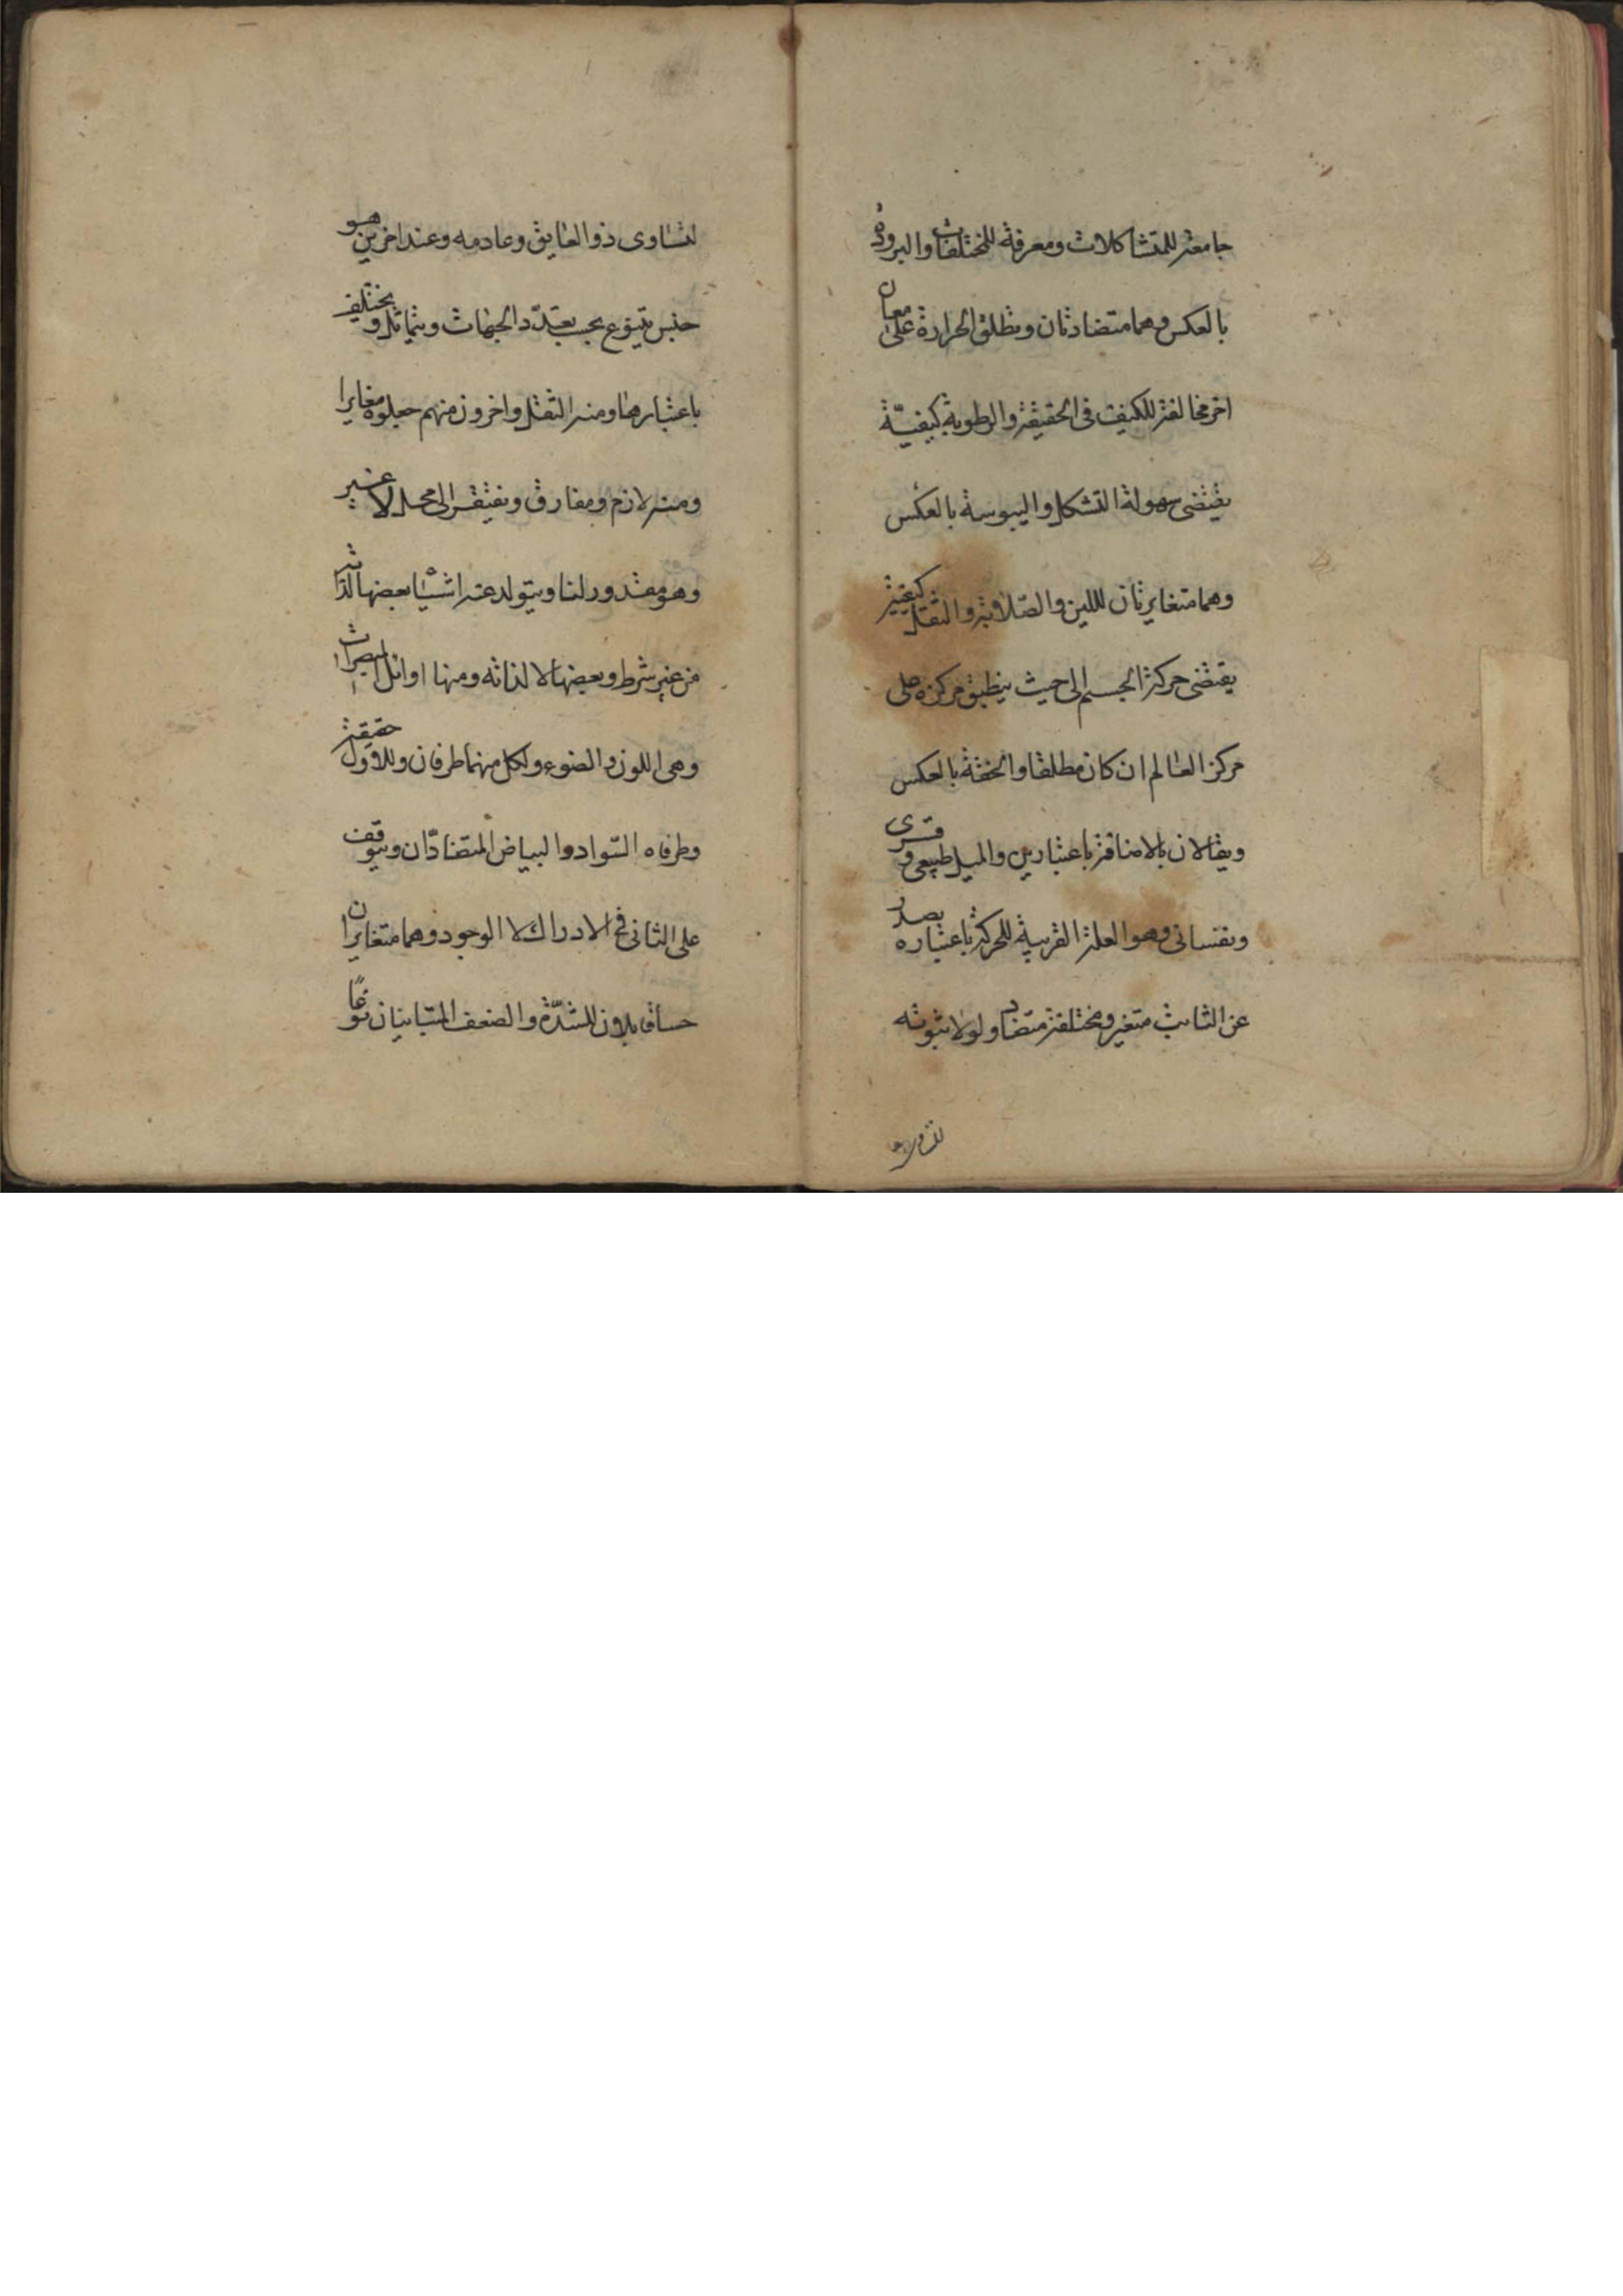 جامعة للمتشاكلات ومعرفة للمختلفات والبرودة
بالعكس وهما متضادتان ويطلق الحرارة على معان
اخر مخالفة للكيفية فى الحقيقة والرطوبة كيفيّة
يقتضى سهولة التشكل واليبوسة بالعكس
وهما متغايرتان للين والصّلابة والثقل كيفية
يقتضى حركة الجسم الى حيث ينطبق مركزه على
مركز العالم ان كان مطلقا والخفة بالعكس
ويقالان بالاضافة باعتبارين والميل طبيعى وقسرى
ونفسانى وهو العلة القريبة للحركة باعتباره يصدر
عن الثابت متغير ومختلفة متضاد ولولا ثبوته
لتساوى ذو العايق وعادمه وعند اخرين هو
جنس يتنوع بحسب تعدّد الجهات ويتماثل ويختلف
باعتبارها ومنه الثقل واخرون منهم جعلوه مغايرا
ومنه لازم ومفارق ويفتقر الى محل لا غير
وهو مقدور لنا ويتولد عنه اشيا بعضها لذاته
من غير شرط وبعضها لا لذاته ومنها اوائل المبصرات
وهى اللون والضوء ولكل منهما طرفان وللاول حقيقة
وطرفاه السّواد والبياض المتضادّان ويتوقف
على الثانى فى الادراك لا الوجود وهما متغايران
حسا قابلان للشدّة والضعف المتباينان نوعًا